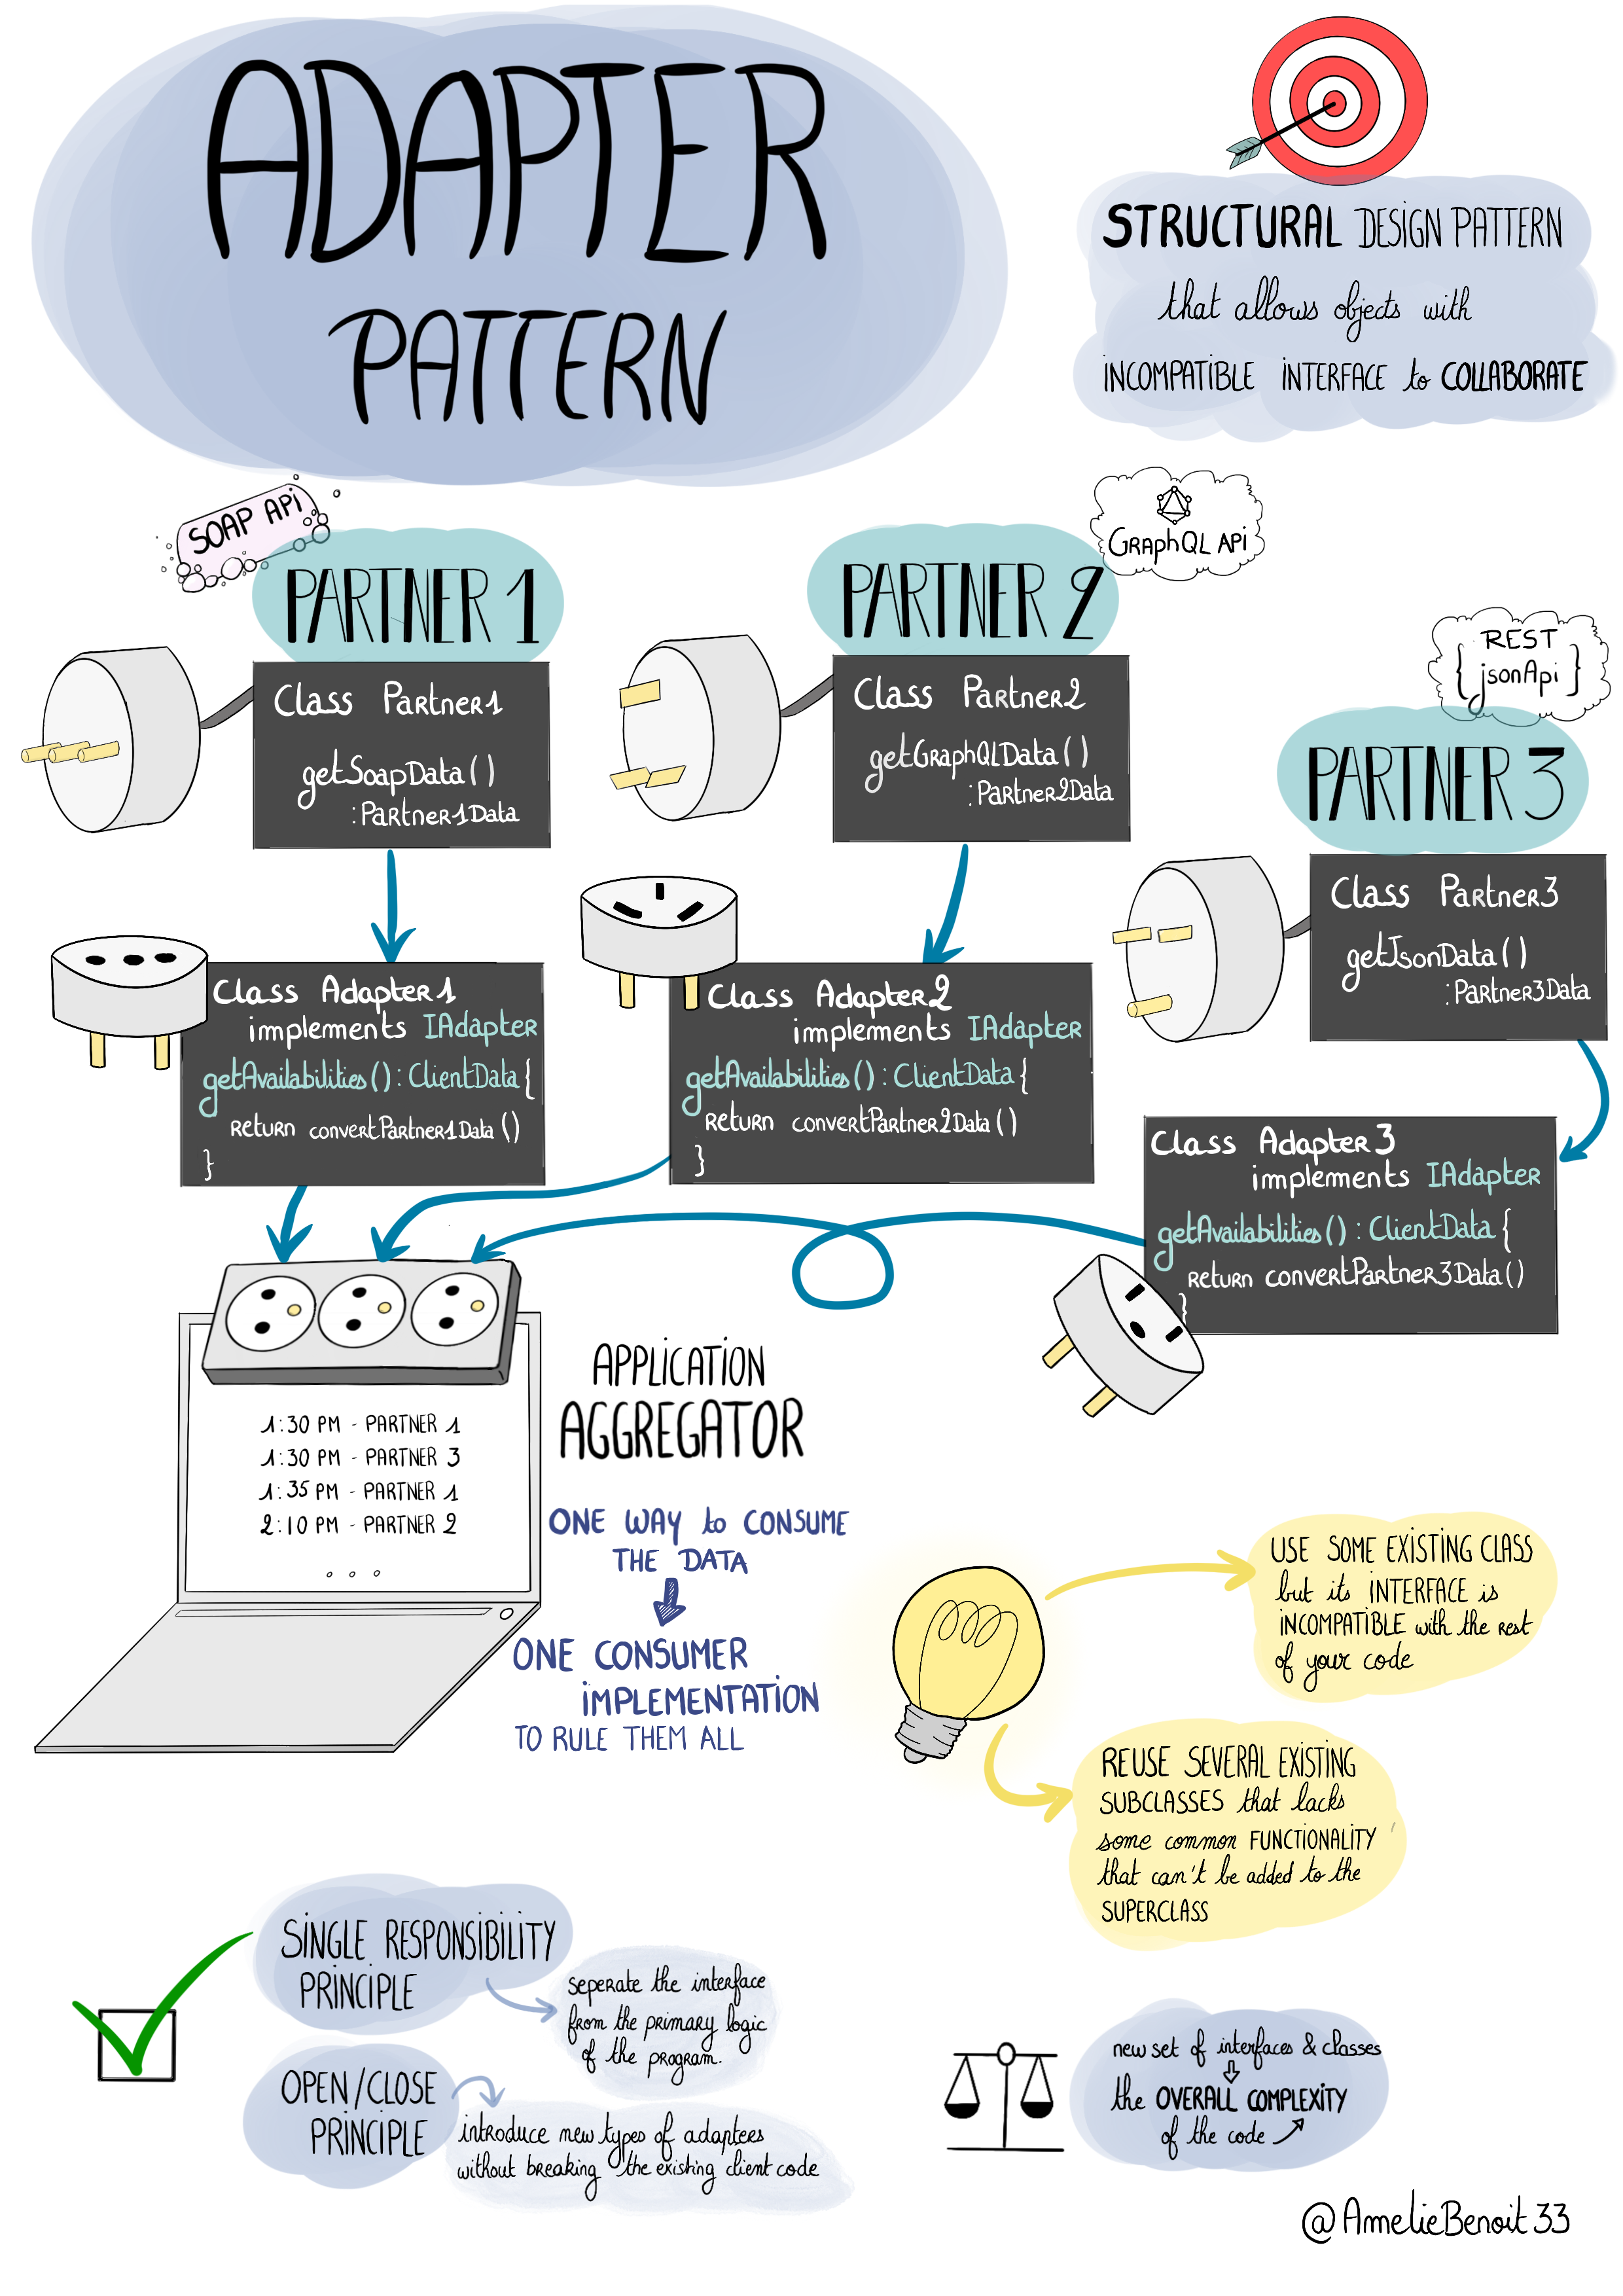 ADAPTER
PATTERN
STRUCTURAL DESIGN PATTERN
that allows objects with
INCOMPATIBLE INTERFACE to COLLABORATE
SOAP APi
PARTNER 1
Class Partner1
getSoapData()
:Partner1Data
GRAphQL APi
PARTNER 2
Class Partner2
getGraphQLData()
:Partner2Data
REST
{ jsonApi }
PARTNER 3
Class Partner3
getJsonData()
:Partner3Data
Class Adapter1
implements IAdapter
getAvailabilities() : ClientData {
return convertPartner1Data()
}
Class Adapter2
implements IAdapter
getAvailabilities() : ClientData {
return convertPartner2Data()
}
Class Adapter3
implements IAdapter
getAvailabilities() : ClientData {
return convertPartner3Data()
}
1:30 PM - PARTNER 1
1:30 PM - PARTNER 3
1:35 PM - PARTNER 1
2:10 PM - PARTNER 2
...
APPLICATION
AGGREGATOR
ONE WAY to CONSUME
THE DATA
ONE CONSUMER
IMPLEMENTATION
TO RULE THEM ALL
USE SOME EXISTING CLASS
but its INTERFACE is
INCOMPATIBLE with the rest
of your code
REUSE SEVERAL EXISTING
SUBCLASSES that lacks
some common FUNCTIONALITY
that can't be added to the
SUPERCLASS
SINGLE RESPONSIBILITY
PRINCIPLE
seperate the interface
from the primary logic
of the program.
OPEN/CLOSE
PRINCIPLE
introduce new types of adaptees
without breaking the existing client code
new set of interfaces & classes
the OVERALL COMPLEXITY
of the code
@AmelieBenoit33